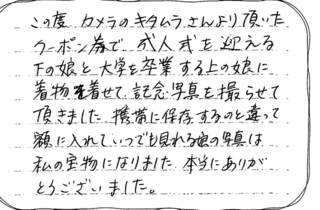 この度 カメラのキタムラさんより頂いた
クーポン券で 成人式を迎える
下の娘と 大学を卒業する上の娘に
着物を着せて、記念写真を撮らせて
頂きました。携帯に保存するのと違って
額に入れていつでも見れる娘の写真は
私の宝物になりました。本当にありが
とうございました。